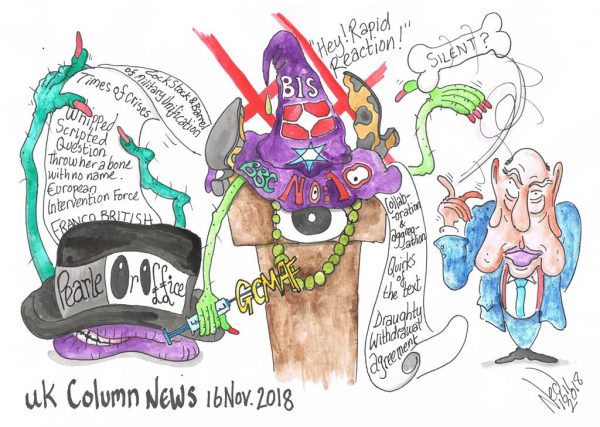 "Hey! Rapid
Reaction!"
SILENT?
Lock Stock & Barrel
of Military Unification
Times of Crises
Whipped
Scripted
Question,
throw her a bone
with no name.
European
Intervention Force
FRANCO BRITISH
BIS
BBC
NO:10
Collab-
oration &
aggreg-
ation
Quirks
of
the text
Draughty
Withdrawal
agreement
Pearle Or Office
GCMAF
UK COLUMN NEWS 16 NOV. 2018
2018